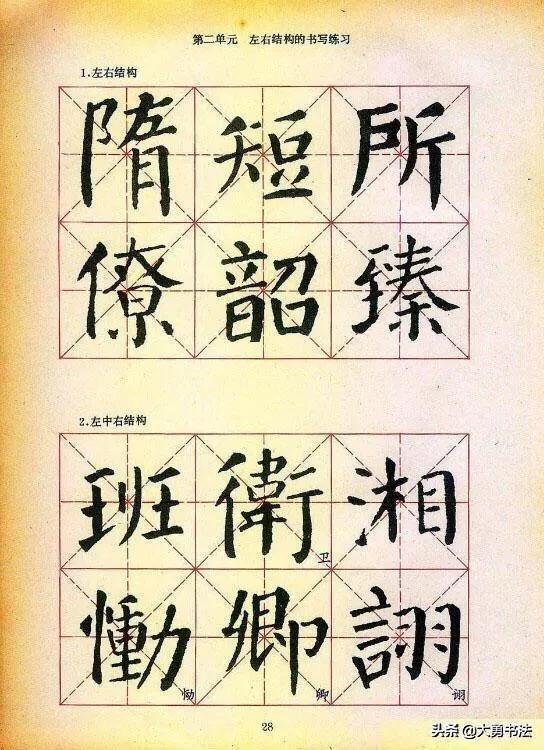 第二单元 左右结构的书写练习
1.左右结构
隋短所
僚韶臻
2.左中右结构
班衛湘
卫
慟卿詡
恸 卿 诩
28
头条@大勇书法